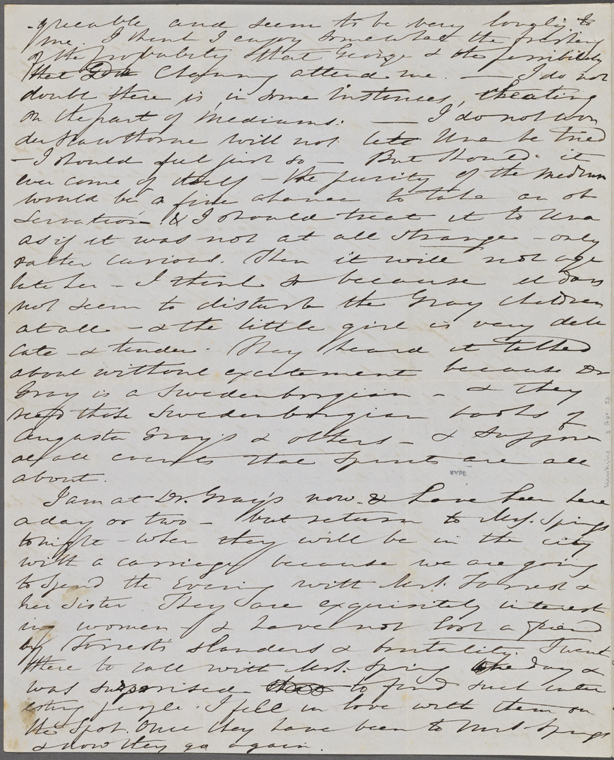 -greeable and seem to be very lovely to
me. I think I enjoy somewhat the
of the probability that George & the possibility
that Clafin attend me. — I do not
doubt there is, in some instances, cheating
on the part of mediums. — I do not won
der Hawthorne will not let Una be tried
— I should feel just so — But should it
ever come of itself — the purity of the medium
would be a fine chance to take an ob
servation & I should treat it to Una
as if it was not at all strange — only
rather curious. Then it will not agi
tate her — I think so because it does
not seem to disturb the Gray children
at all — & the little girl is very deli
cate & tender. They heard it talked
about without excitement because Dr
Gray is a Swedenborgian — & they
read those Swedenborgian books of
Augusta Gray's & others — & suppose
at all events that spirits are all
about.
I am at Dr. Gray's now & have been here
a day or two — but return to Mrs. Springs
tonight — when they will be in the city
with a carriage because we are going
to spend the Evening with Mrs. Forrest &
her Sister They are exquisitely interest
ing women — & have not lost a friend
by Forrest's slanders & brutality. I went
there to call with Mrs. Spring one day &
was surprised to find such inter
esting people. I fell in love with them on
the spot. Once they have been to Mrs Springs
& now they go again.